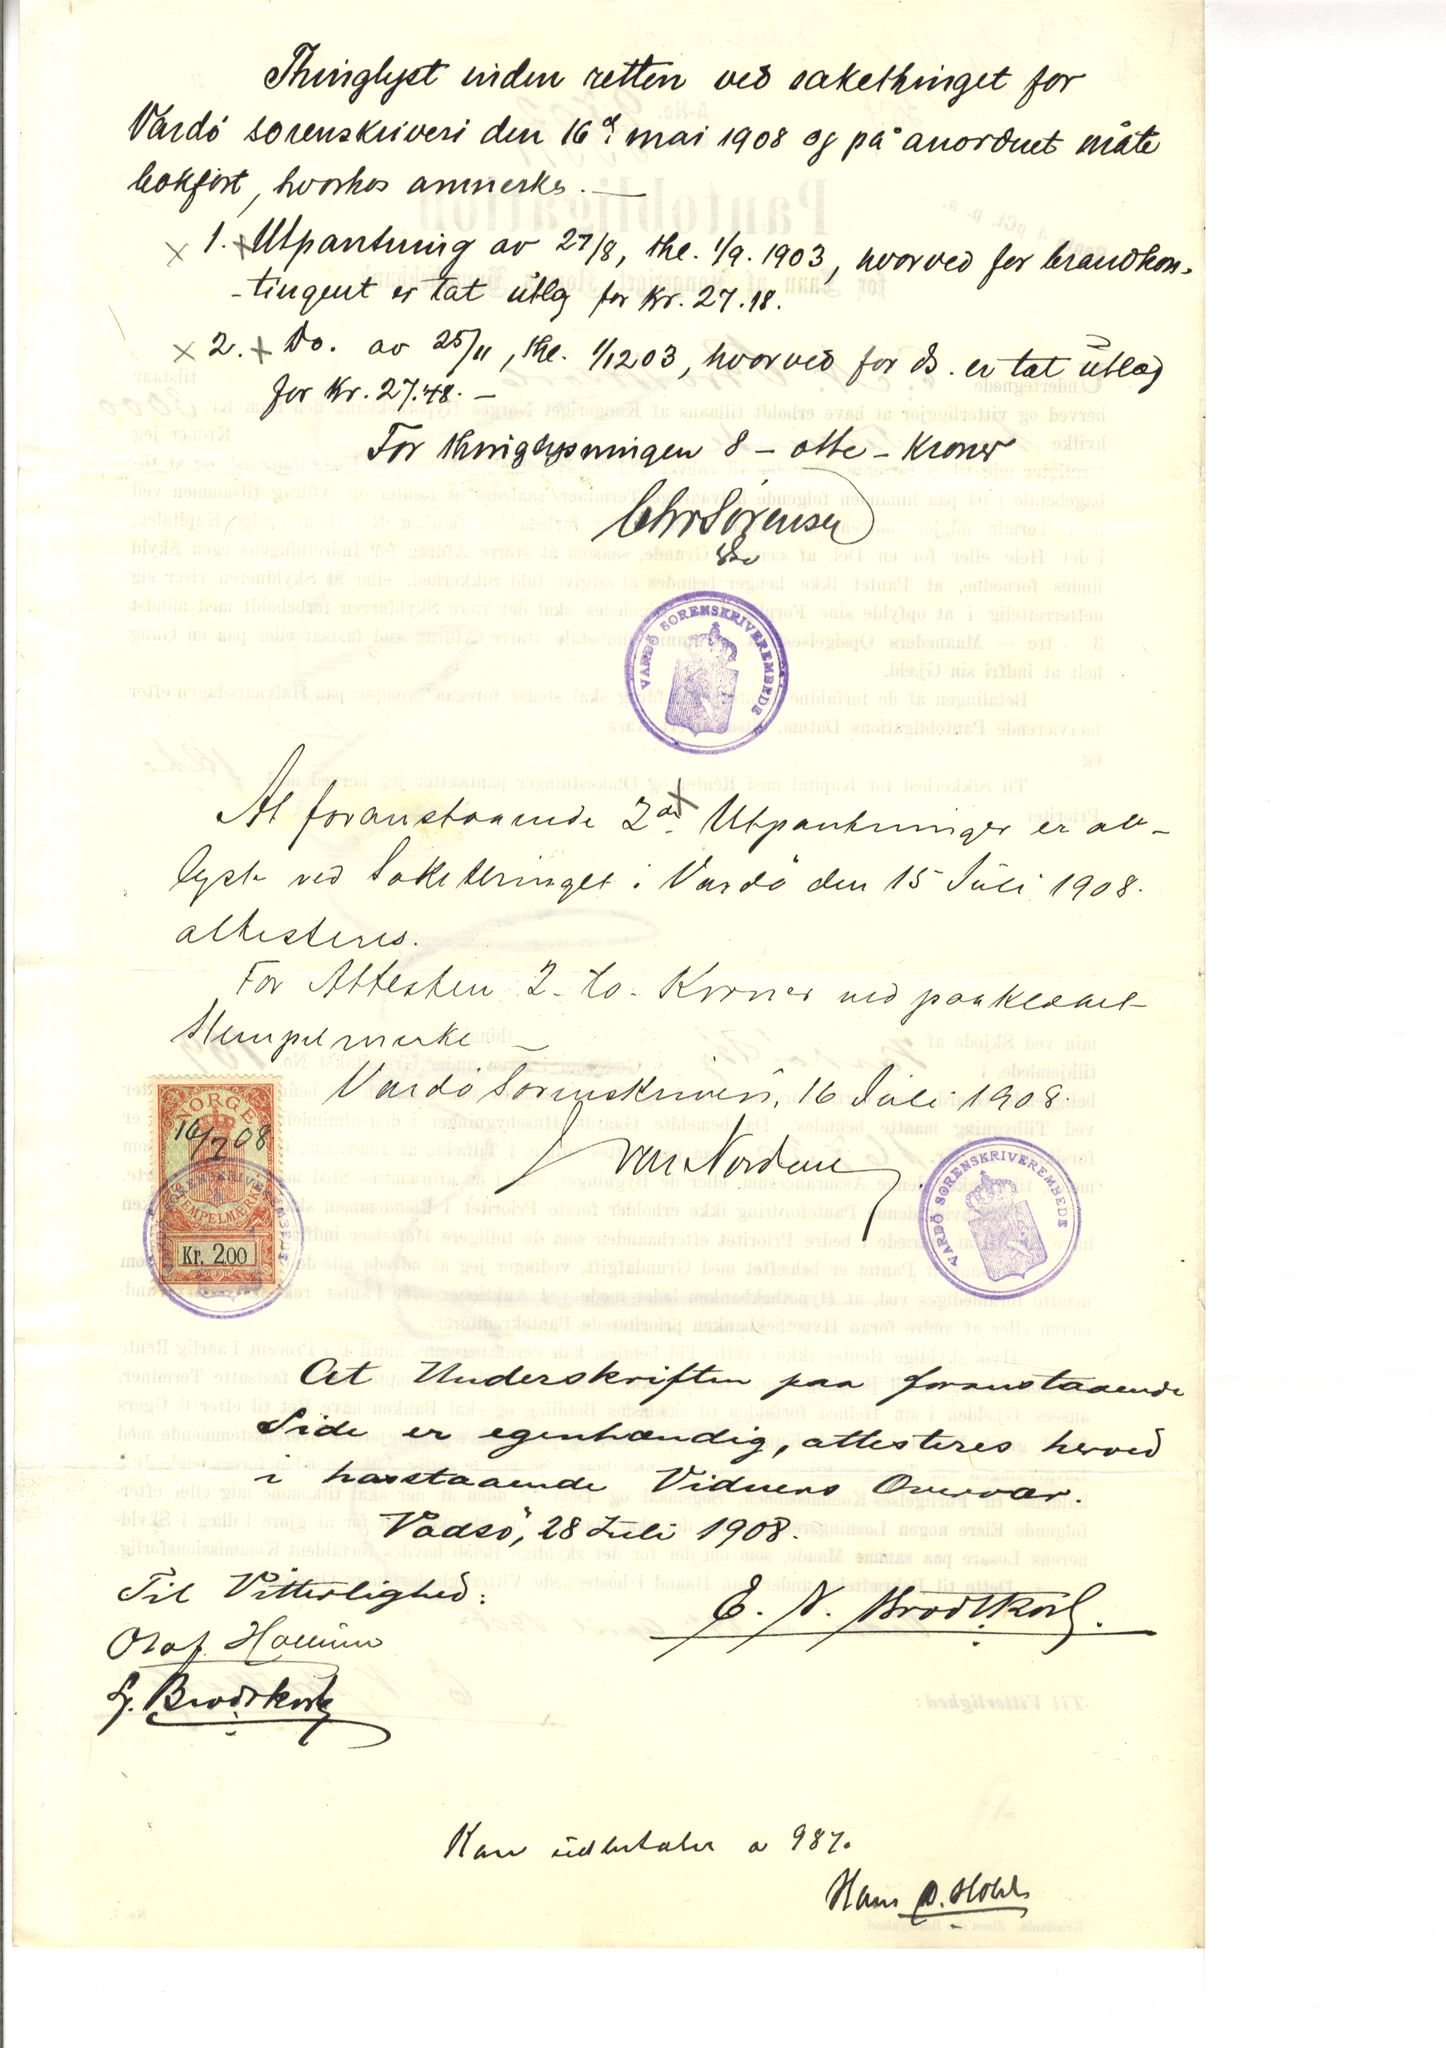 Thinglyst inden retten ved saksthinget for
Vardö sorenskriveri den 16de mai 1908 og på anordnet måte
bokført, hvorhos anmerkes. —
1. Utpantning av 27/8, thl. 1/9. 1903, hvorved for brandkon-
-tingent er tat utlæg for Kr. 27.18.
2. Do. av 25/11, thl. 1/12 03, hvorved for do. er tat utlæg
for Kr. 27.48. —
For thinglysningen 8 — otte — Kroner
Chr Sörensen
VARDÖ SORENSKRIVEREMBEDE
At foranstaaende 2de Utpantninger er av-
lyst ved Saksthinget i Vardö den 15 Juli 1908.
attesteres.
For Attesten 2 - to - Kroner ved paaklæbet
Stempelmerke —
Vardö Sorenskriveri, 16 Juli 1908.
van Norden
NORGE
16/7 08
STEMPELMÆRKE
Kr. 2.00
VARDÖ SORENSKRIVEREMBEDE
VARDÖ SORENSKRIVEREMBEDE
At Underskriften paa foranstaaende
Side er egenhændig, attesteres herved
i hosstaaende Vidners Overvær.
Vadsö, 28 Juli 1908.
Til Vitterlighed:
E. N. Brodtkorb.
Olaf
G. Brodtkorb
Kan udbetales a 98%.
Hans